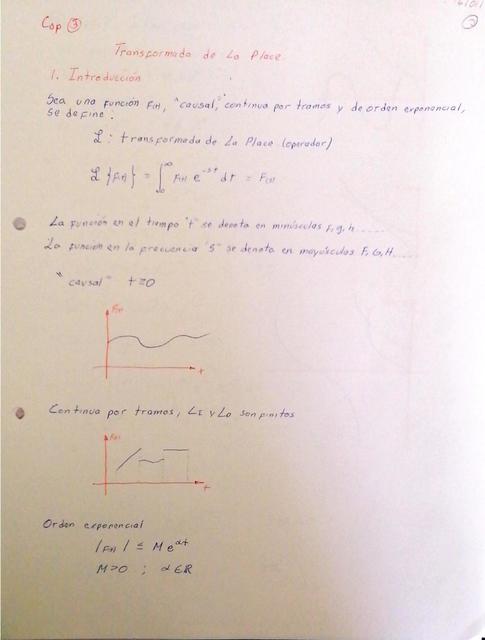 Cap ③
②
Transformada de La Place
1. Introducción
Sea una función F(t), "causal," continua por tramos y de orden exponencial,
se define:
ℒ : transformada de La Place (operador)
ℒ {F(t)} = ∫₀^∞ F(t) e^-st dt = F(s)
La función en el tiempo "t" se denota en minúsculas f, g, h......
La función en la frecuencia "S" se denota en mayúsculas F, G, H.....
"causal" t≥0
F(t)
t
Continua por tramos, LI y LD son finitos
F(t)
t
Orden exponencial
|F(t)| ≤ M e^αt
M>0 ; α∈R